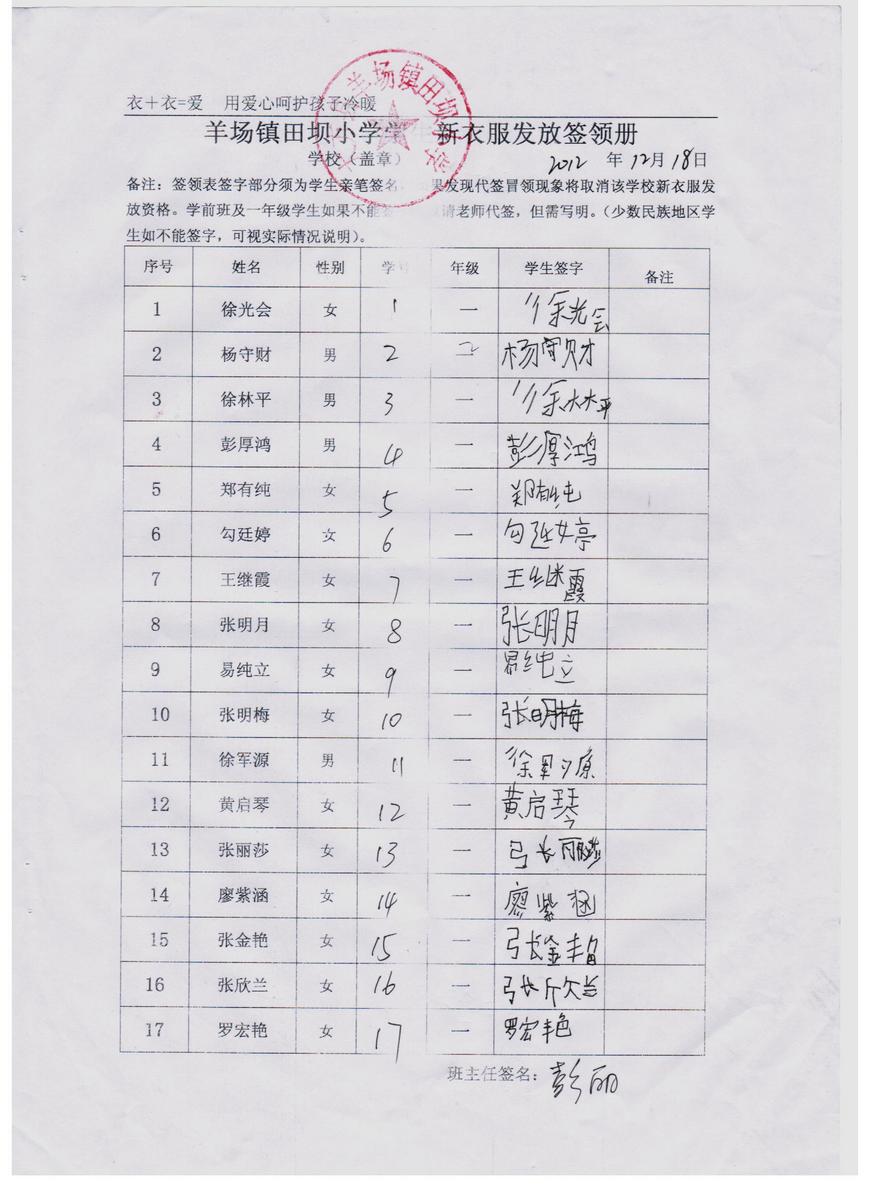 衣+衣=爱 用爱心呵护孩子冷暖
羊场镇田坝小学学生新衣服发放签领册
学校(盖章) 2012 年 12月 18日
羊场镇田坝小学
备注:签领表签字部分须为学生亲笔签名,如果发现代签冒领现象将取消该学校新衣服发
放资格。学前班及一年级学生如果不能签 请老师代签,但需写明。(少数民族地区学
生如不能签字,可视实际情况说明)。
序号 姓名 性别 学号 年级 学生签字 备注
1 徐光会 女 1 一 徐光会
2 杨守财 男 2 二 杨守财
3 徐林平 男 3 一 徐林平
4 彭厚鸿 男 4 一 彭厚鸿
5 郑有纯 女 5 一 郑有纯
6 勾廷婷 女 6 一 勾廷婷
7 王继霞 女 7 一 王继霞
8 张明月 女 8 一 张明月
9 易纯立 女 9 一 易纯立
10 张明梅 女 10 一 张明梅
11 徐军源 男 11 一 徐军源
12 黄启琴 女 12 一 黄启琴
13 张丽莎 女 13 一 张丽莎
14 廖紫涵 女 14 一 廖紫涵
15 张金艳 女 15 一 张金艳
16 张欣兰 女 16 一 张欣兰
17 罗宏艳 女 17 一 罗宏艳
班主任签名:彭丽